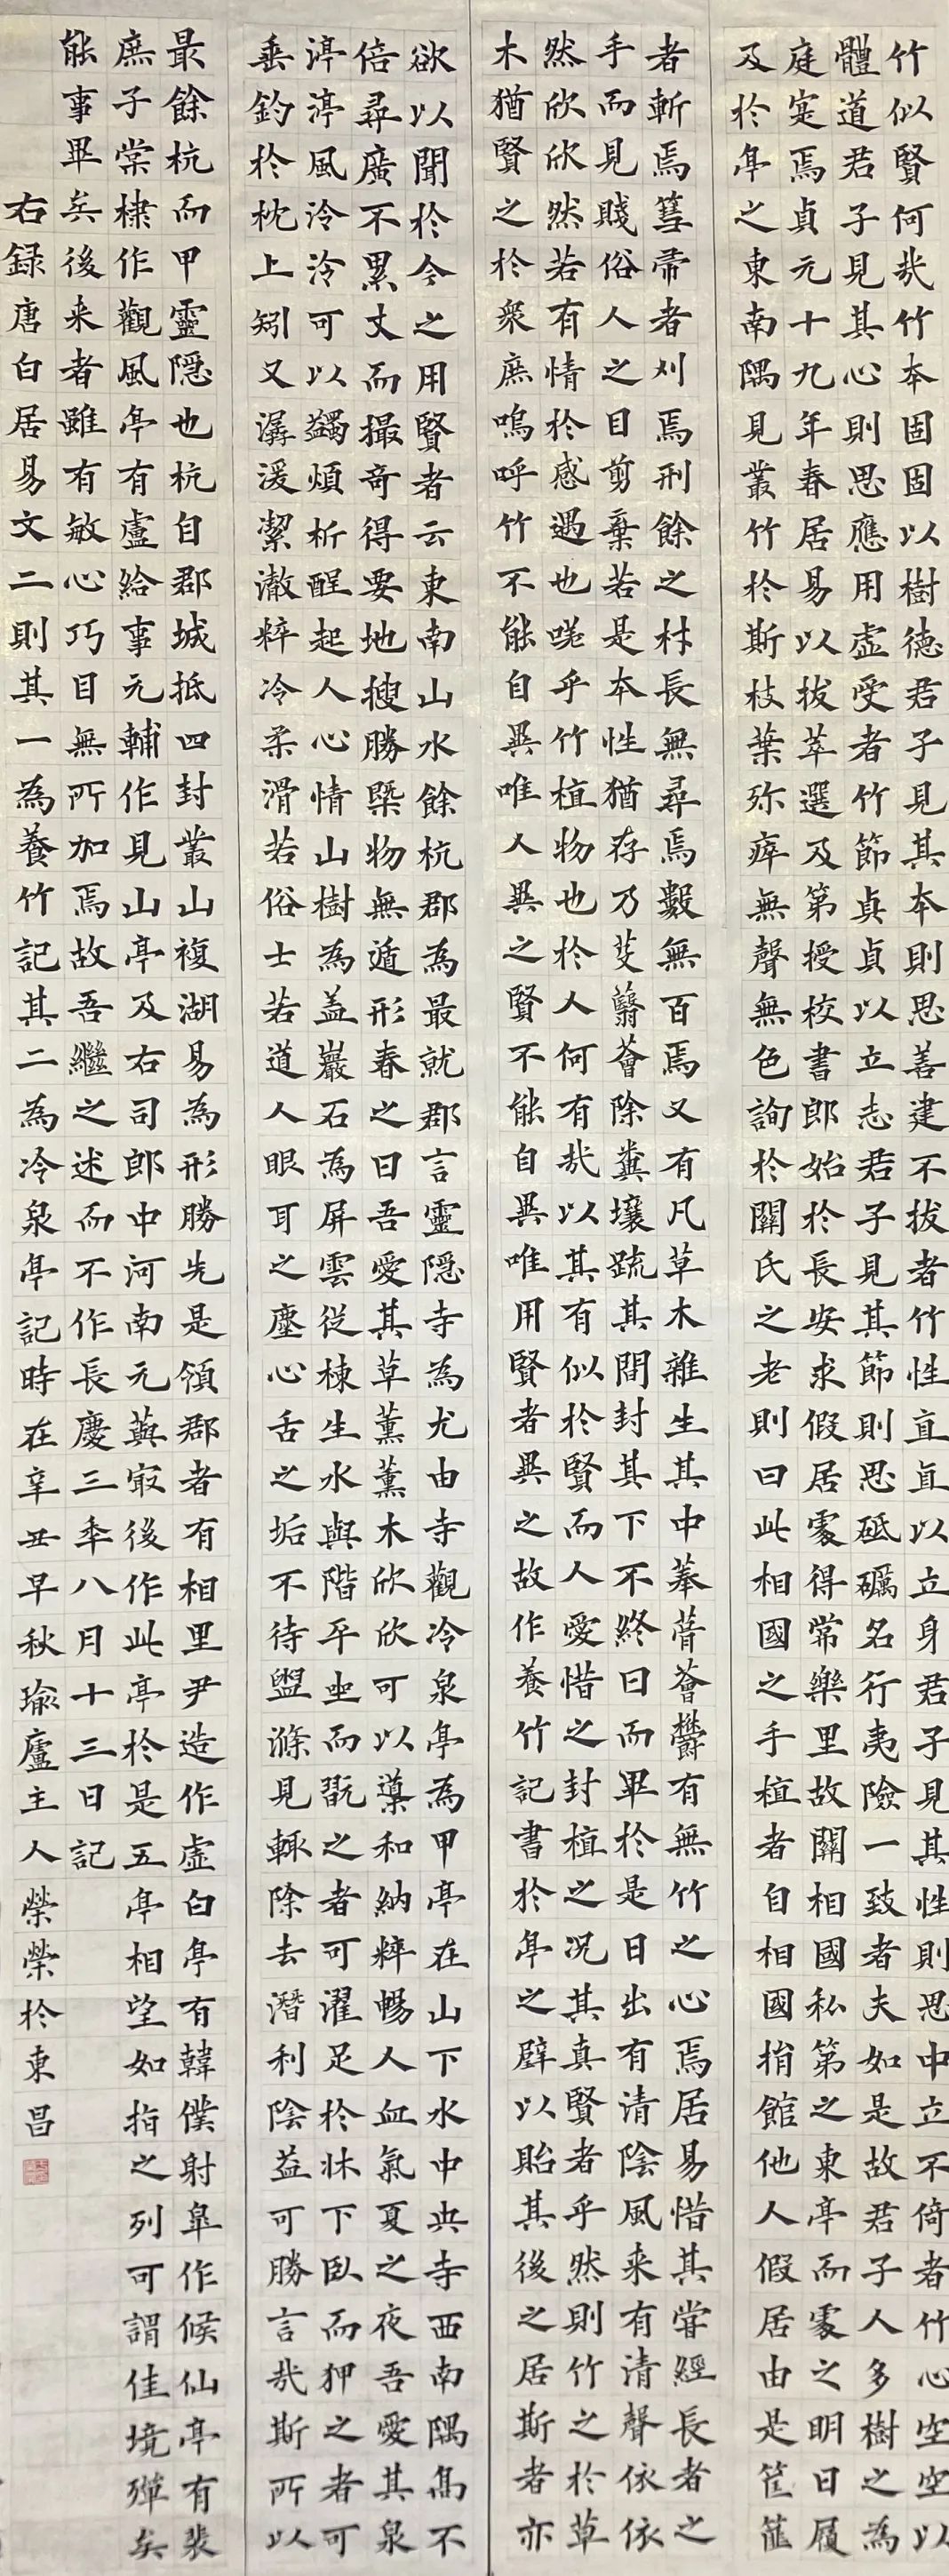 竹似賢何哉竹本固固以樹德君子見其本則思善建不拔者竹性直直以立身君子見其性則思中立不倚者竹心空空以
體道君子見其心則思應用虛受者竹節貞貞以立志君子見其節則思砥礪名行夷險一致者夫如是故君子人多樹之為
庭寔焉貞元十九年春居易以拔萃選及第授校書郎始於長安求假居處得常樂里故關相國私第之東亭而處之明日履
及於亭之東南隅見叢竹於斯枝葉殄瘁無聲無色詢於關氏之老則曰此相國之手植者自相國捐館他人假居由是筐篚
者斬焉篲帚者刈焉刑餘之材長無尋焉數無百焉又有凡草木雜生其中菶茸薈鬱有無竹之心焉居易惜其嘗經長者之
手而見賤俗人之目剪棄若是本性猶存乃芟蘙薈除糞壤疏其間封其下不終日而畢於是日出有清陰風来有清聲依依
然欣欣然若有情於感遇也嗟乎竹植物也於人何有哉以其有似於賢而人愛惜之封植之况其真賢者乎然則竹之於草
木猶賢之於衆庶嗚呼竹不能自異唯人異之賢不能自異唯用賢者異之故作養竹記書於亭之壁以貽其後之居斯者亦
欲以聞於今之用賢者云東南山水餘杭郡為最就郡言靈隱寺為尤由寺觀冷泉亭為甲亭在山下水中央寺西南隅高不
倍尋廣不累丈而撮奇得要地搜勝槩物無遁形春之日吾愛其草薰薰木欣欣可以導和納粹暢人血氣夏之夜吾愛其泉
渟渟風泠泠可以蠲煩析酲起人心情山樹為盖巖石為屏雲從棟生水與階平坐而翫之者可濯足於牀下臥而狎之者可
垂釣於枕上矧又潺湲潔澈粹冷柔滑若俗士若道人眼耳之塵心舌之垢不待盥滌見輒除去潛利陰益可勝言哉斯所以
最餘杭而甲靈隱也杭自郡城抵四封叢山複湖易為形勝先是領郡者有相里尹造作虛白亭有韓僕射皋作候仙亭有裴
庶子棠棣作觀風亭有盧給事元輔作見山亭及右司郎中河南元藇冣後作此亭於是五亭相望如指之列可謂佳境殫矣
能事畢矣後来者雖有敏心巧目無所加焉故吾繼之述而不作長慶三年八月十三日記
右録唐白居易文二則其一為養竹記其二為冷泉亭記時在辛丑早秋瑜廬主人榮榮於東昌